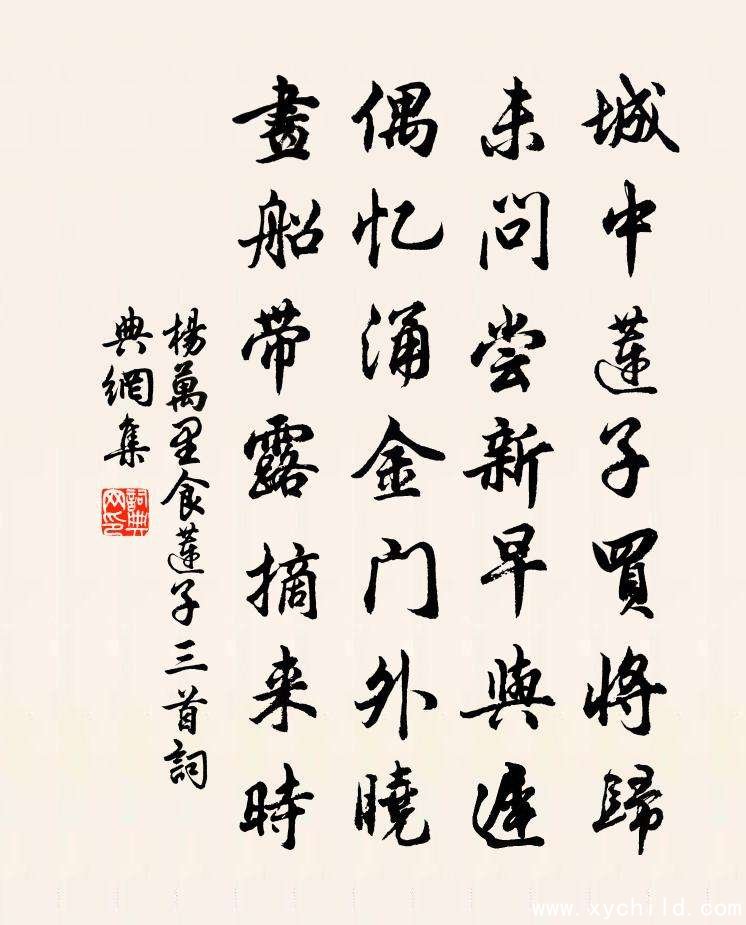 城中蓮子買將歸
未问尝新早與遲
偶忆涌金门外曉
畫船带露摘来時
楊萬里食蓮子三首詞
典網集
詞典网印
www.xychild.com